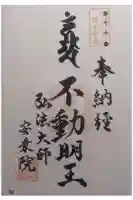 奉納経
不動明王
弘法大師
安養院